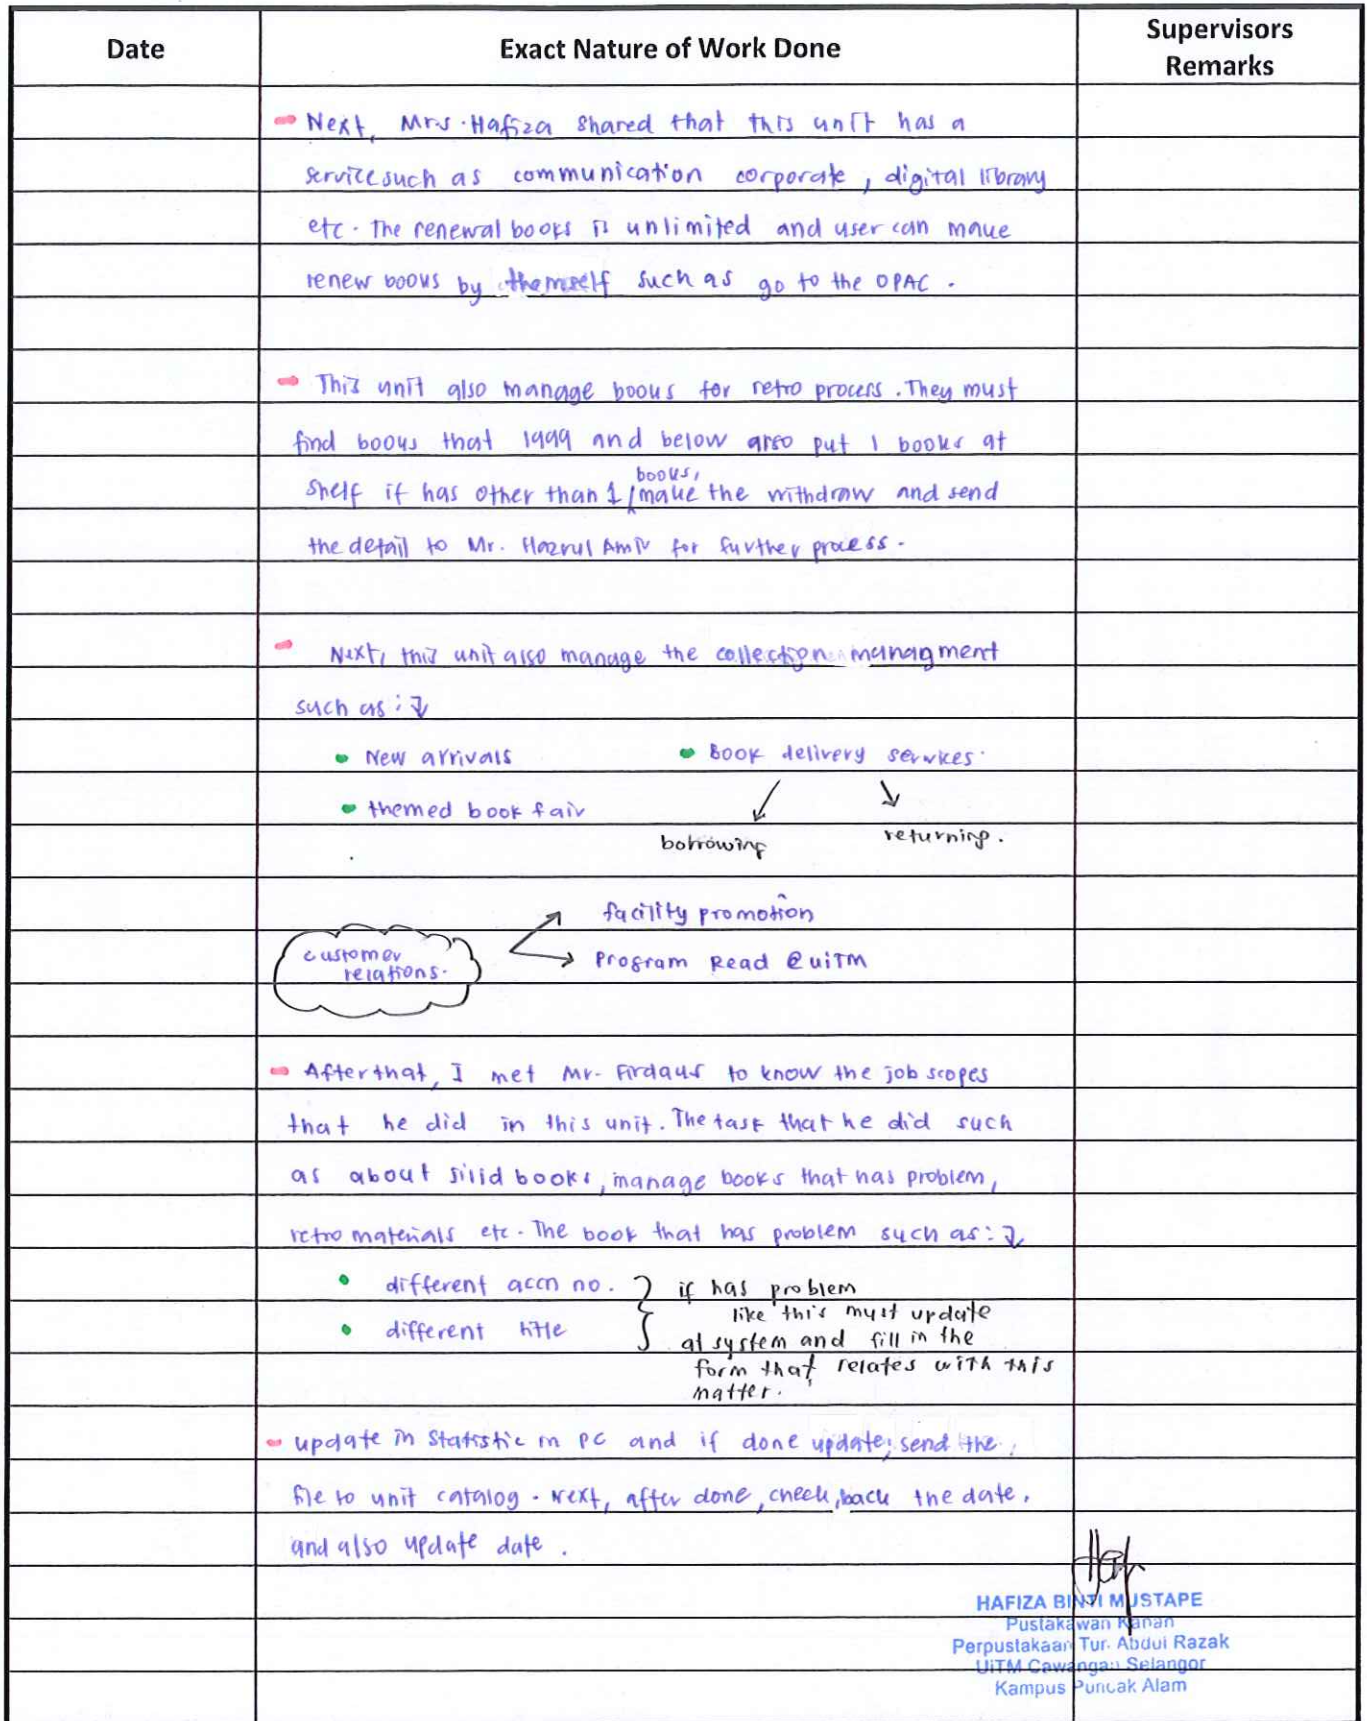 Date
Exact Nature of Work Done
Supervisors
Remarks
Next, Mrs. Hafiza shared that this unit has a
service such as communication corporate, digital library
etc. The renewal books is unlimited and user can make
renew books by themself such as go to the OPAC.
This unit also manage books for retro process. They must
find books that 1999 and below also put 1 books at
books,
shelf if has other than 1 / make the withdraw and send
the detail to Mr. Hazrul Amir for further process.
Next, this unit also manage the collection managment
such as :
New arrivals
Book delivery services.
themed book fair
borrowing
returning.
facility promotion
customer
relations.
Program Read @ UiTM
After that, I met Mr. Firdaus to know the job scopes
that he did in this unit. The task that he did such
as about books, manage books that has problem,
retro materials etc. The book that has problem such as :
different accn no.
different title
if has problem
like this must update
at system and fill in the
form that relates with this
matter.
update in Statistic in PC and if done update, send the
file to unit catalog. Next, after done, check back the date,
and also update date.
HAFIZA BINTI MUSTAPE
Pustakawan Kanan
Perpustakaan Tun Abdul Razak
UiTM Cawangan Selangor
Kampus Puncak Alam